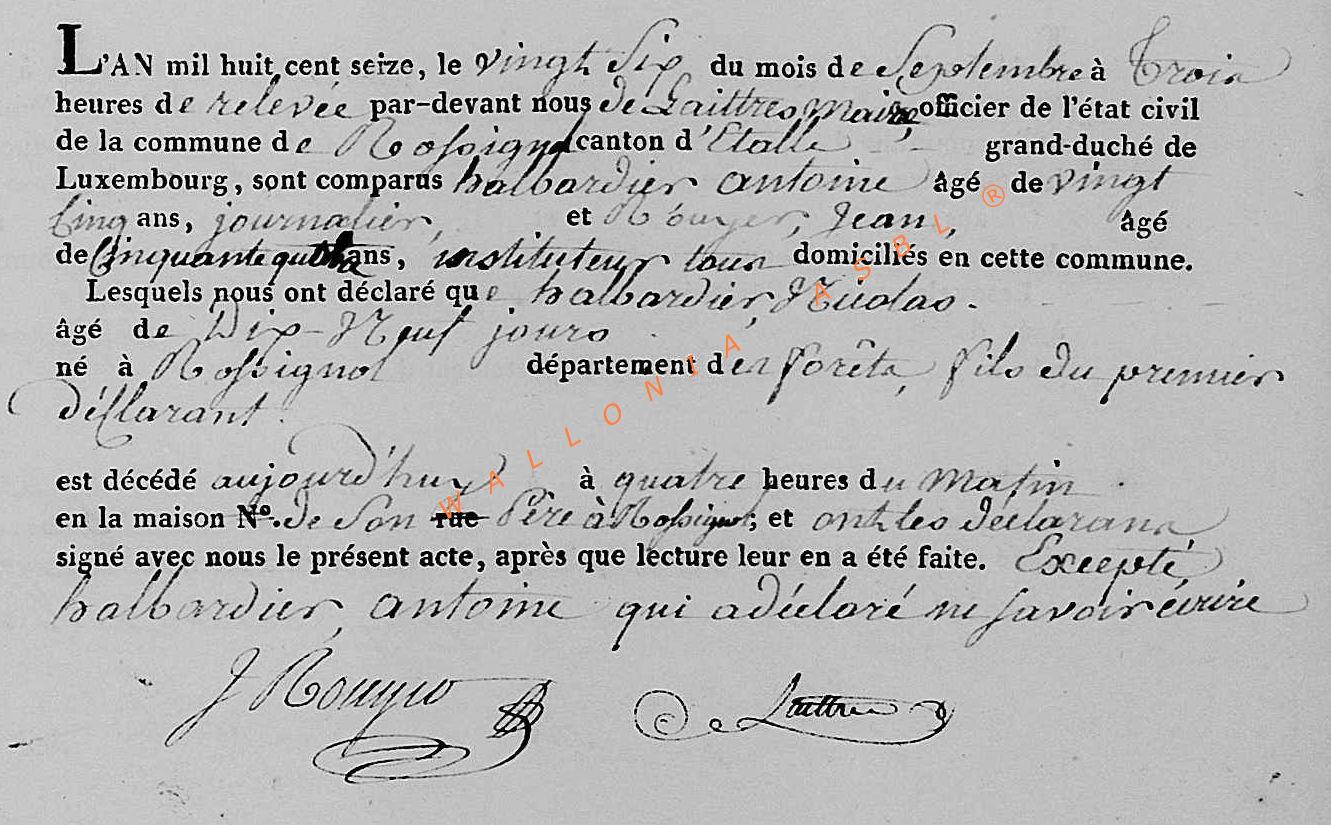 L'AN mil huit cent seize, le vingt Six du mois de Septembre à Trois
heures de relevée par-devant nous de Laittres Maire, officier de l'état civil
de la commune de Rossignol canton d'Etalle grand-duché de
Luxembourg, sont comparus halbardier antoine âgé de vingt
Cinq ans, journalier, et Rouyer, Jean, âgé
de Cinquante quatre ans, instituteur tous domiciliés en cette commune.
Lesquels nous ont déclaré que halbardier, Nicolas.
âgé de Dix-Neuf jours
né à Rossignol département des forêts, fils du premier
déclarant.
est décédé aujourd'huy à quatre heures du Matin.
en la maison N°. de Son rue Père à Rossignol; et ont les déclarans
signé avec nous le présent acte, après que lecture leur en a été faite. Excepté
halbardier, antoine qui a déclaré ne savoir écrire
J Rouyer de Laittres
WALLONIA ASBL ®